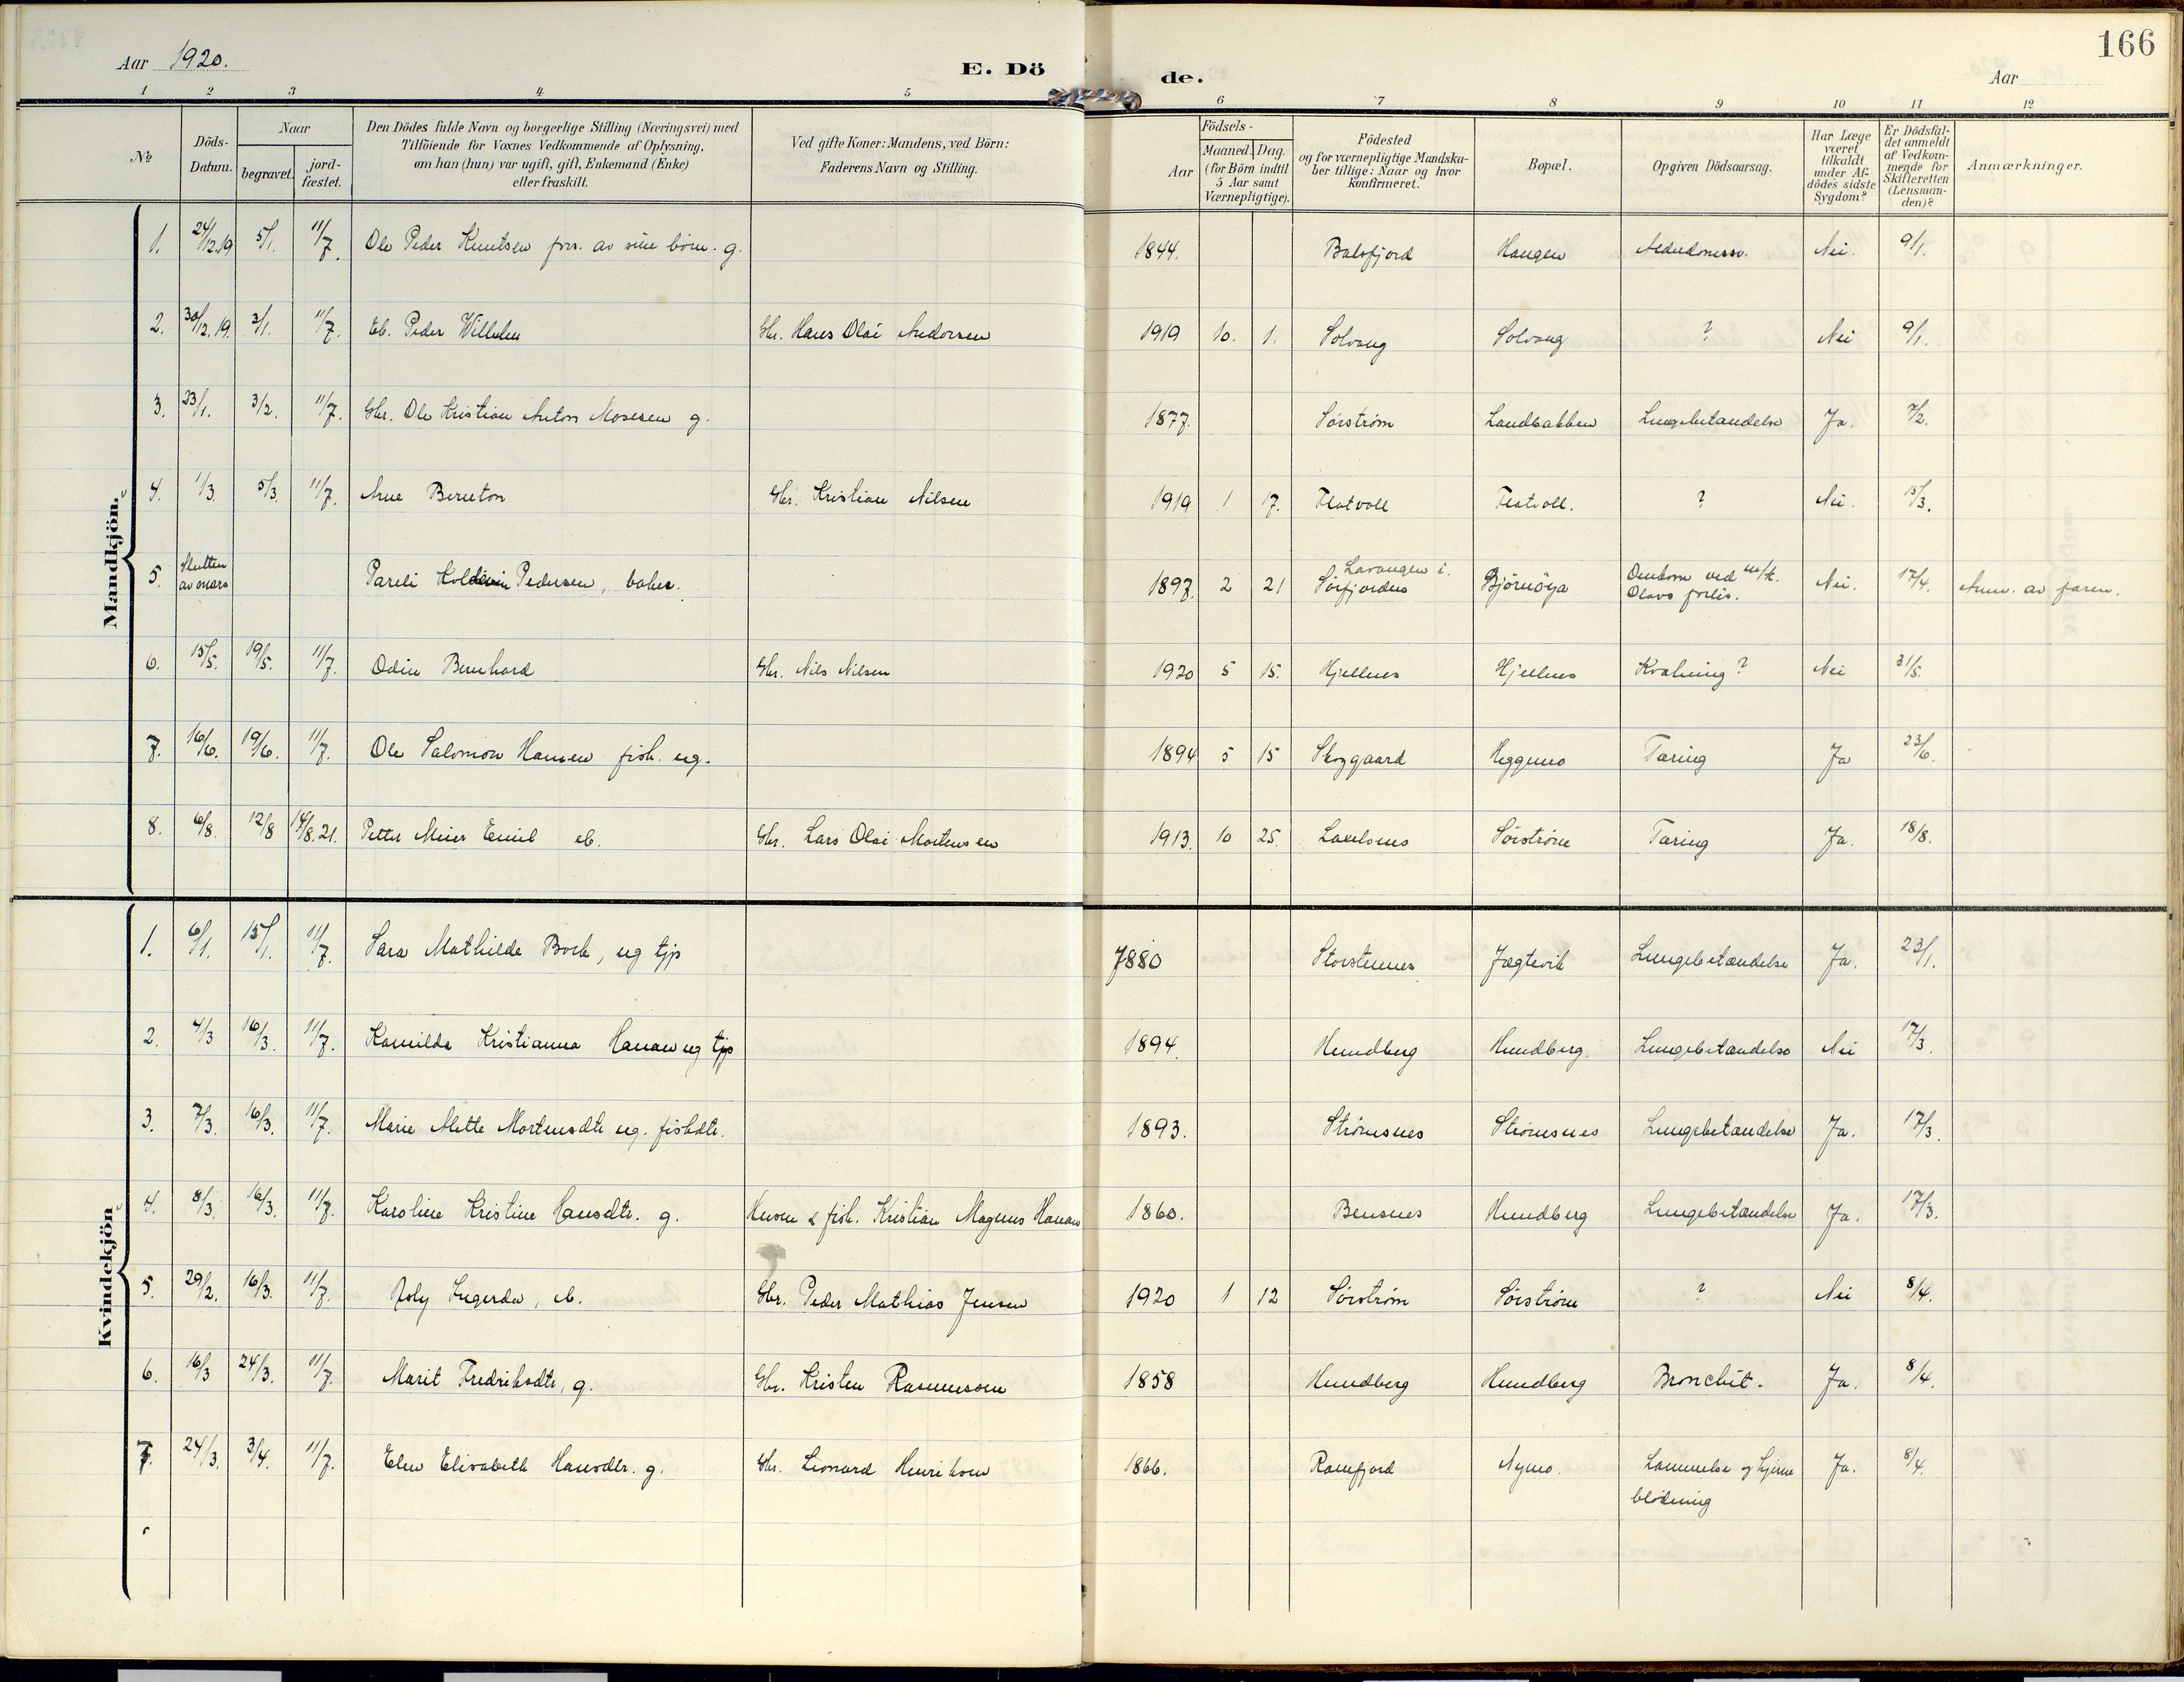 166
Aar 1920.
E. Dö
de.
Aar
1 2 3 4 5 6 7 8 9 10 11 12
No
Döds-Datum.
Naar
begravet.
jord-fæstet.
Den Dödes fulde Navn og borgerlige Stilling (Næringsvei) med
Tilföiende for Voxnes Vedkommende af Oplysning,
om han (hun) var ugift, gift, Enkemand (Enke)
eller fraskilt.
Ved gifte Koner: Mandens, ved Börn:
Faderens Navn og Stilling.
Aar
Födsels-
Maaned. Dag.
(for Börn indtil
5 Aar samt
Værnepligtige).
Födested
og for værnepligtige Mandska-
ber tillige: Naar og hvor
konfirmeret.
Bopæl.
Opgiven Dödsaarsag.
Har Læge
været
tilkaldt
under Af-
dödes sidste
Sygdom?
Er Dödsfal-
det anmeldt
af Vedkom-
mende for
Skifteretten
(Lensman-
den)?
Anmærkninger.
Mandkjön.
1. 24/12.19 5/1. 11/7. Ole Peder Knutsen fors. av sine börn. g. 1844. Balsfjord Haugen Nei. 9/1.
2. 30/12.19. 3/1. 11/7. Eb. Peder Wilhelm Gbr. Hans Olai Andorsen 1919 10. 1. Solvang Solvang ? Nei 9/1.
3. 23/1. 3/2. 11/7. Gbr. Ole Kristian Anton Mosesen g. 1877. Sörström Landbakken Lungebetændelse Ja. 7/2.
4. 1/3. 5/3. 11/7. Arne Bernton Gbr. Kristian Nilsen 1919 1 17. Flatvoll Flatvoll. ? Nei. 15/3.
5. Slutten av mars Pareli Pedersen, 1897. 2 21 Lavangen i Sörfjorden Björnöya Omkom ved m/k. Olavs forlis. Nei. 17/4. Anm. av faren.
6. 15/5. 19/5. 11/7. Odin Bernhard Gbr. Nils Nilsen 1920 5 15. Hjellnes Hjellnes Kvælning? Nei 31/5.
7. 16/6. 19/6. 11/7. Ole Salomon Hansen fisk. ug. 1894 5 15 Skoggaard Heggmo Tæring Ja 23/6.
8. 6/8. 12/8 14/8.21. Petter Meier Emil eb. Gbr. Lars Olai Mortensen 1913. 10 25. Laxelvnes Sörström Tæring Ja. 18/8.
Kvindekjön
1. 6/1. 15/1. 11/7. Sara Mathilde Bork, ug tjp 1880 Storstennes Jægtvik Lungebetændelse Ja. 23/1.
2. 4/3 16/3. 11/7. Kamilda Kristianna Hansen ug tjp 1894. Hundberg Hundberg. Lungebetændelse Nei 17/3.
3. 7/3. 16/3. 11/7. Marie Mette Mortensdtr ug. fiskdtr. 1893. Strömsnes Strömsnes Lungebetændelse Ja. 17/3.
4. 8/3. 16/3. 11/7. Karoline Kristine Hansdtr. g. Husm & fisk. Kristian Magnus Hansen 1860. Bensnes Hundberg Lungebetændelse Ja. 17/3.
5. 29/2. 16/3. 11/7. Ingerda, eb. Gbr. Peder Mathias Jensen 1920 1 12 Sörström Sörström ? Nei 8/4.
6. 16/3 24/3. 11/7. Marit Fredriksdtr, g. Gbr. Kristen Rasmussen 1858 Hundberg Hundberg Bronchit. Ja. 8/4.
7. 24/3. 3/4. 11/7. Elen Elisabeth Hansdtr. g. Gbr. Leonard Henriksen 1866. Ramfjord Nymo. Lammelse og hjerne Ja. 8/4.
blödning